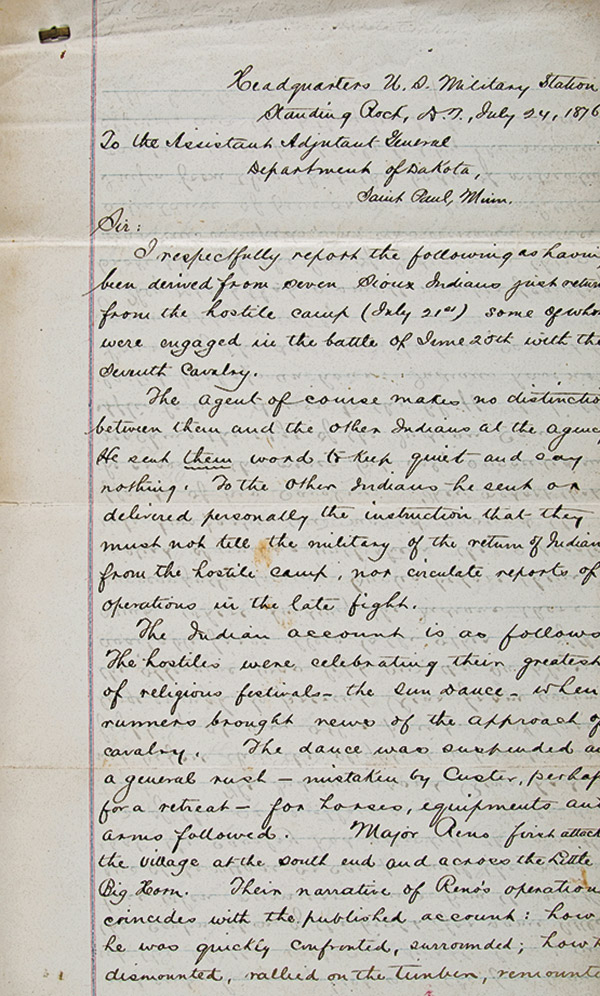 Headquarters U. S. Military Station
Standing Rock, D. T., July 24, 1876
To the Assistant Adjutant General
Department of Dakota,
Saint Paul, Minn.
Sir:
I respectfully report the following as havin
been derived from seven Sioux Indians just retur
from the hostile camp (July 21st) some of whom
were engaged in the battle of June 25th with the
Seventh Cavalry.
The agent of course makes no distinctio
between them and the other Indians at the agenc
He sent them word to keep quiet and say
nothing. To the other Indians he sent or
delivered personally the instruction that they
must not tell the military of the return of Indian
from the hostile camp, nor circulate reports of
operations in the late fight.
The Indian account is as follows
The hostiles were celebrating their greatest
of religious festivals – the sun dance – when
runners brought news of the approach of
cavalry. The dance was suspended an
a general rush – mistaken by Custer, perhap
for a retreat – for horses, equipments and
arms followed. Major Reno first attack
the village at the south end and across the Little
Big Horn. Their narrative of Reno's operation
coincides with the published account: how
he was quickly confronted, surrounded; how h
dismounted, rallied on the timber, remounte